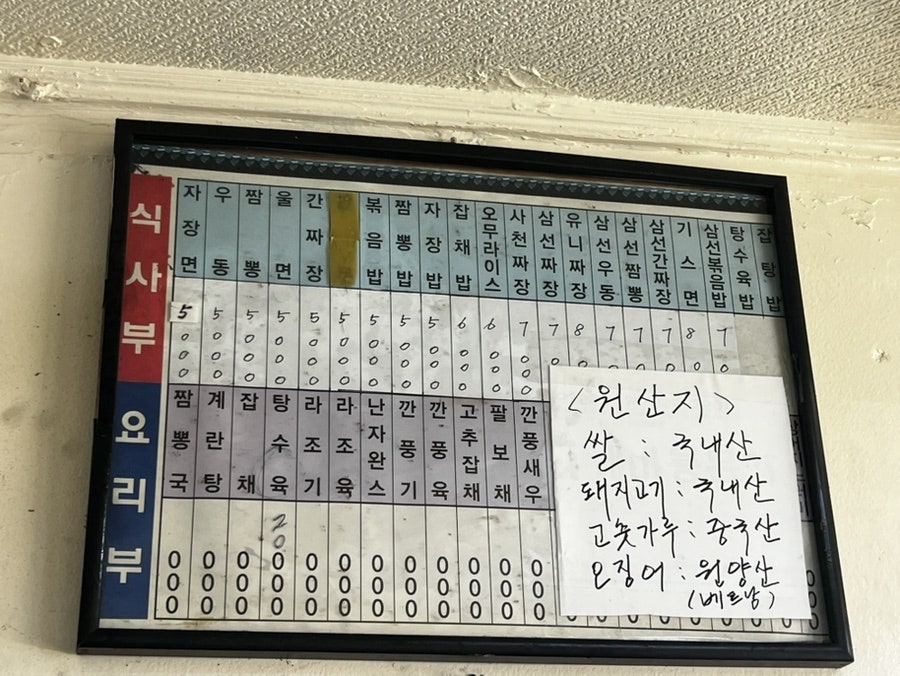 식사부
자장면 5000
우동 5000
짬뽕 5000
울면 5000
간짜장 5000
5000
볶음밥 5000
짬뽕밥 5000
자장밥 5000
잡채밥 6000
오무라이스 6000
사천짜장 7000
삼선짜장 7
유니짜장 8
삼선우동 7
삼선짬뽕 7
삼선간짜장 7
기스면 8
삼선볶음밥 7
탕수육밥
잡탕밥
요리부
짬뽕국 000
계란탕 000
잡채 000
탕수육 20000
라조기 000
라조육 000
난자완스 000
깐풍기 000
깐풍육 000
고추잡채 000
팔보채 000
깐풍새우 000
<원산지>
쌀 : 국내산
돼지고기 : 국내산
고춧가루 : 중국산
오징어 : 원양산
(베트남)